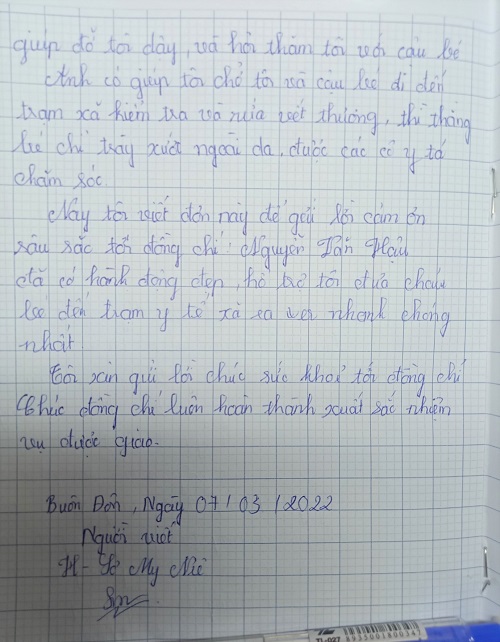 giúp đỡ tôi dậy, và hỏi thăm tôi với cậu bé
Anh có giúp tôi chở tôi và cậu bé đi đến
trạm xá kiểm tra và rửa viết thương, thì thằng
bé chỉ trầy xướt ngoài da, được các cô y tá
chăm sóc.
Nay tôi viết đơn này để gửi lời cám ơn
sâu sắc tới đồng chí: Nguyễn Tấn Hậu
đã có hành động đẹp, hỗ trợ tôi đưa cháu
bé đến trạm y tế xã nhanh chóng
nhất.
Tôi xin gửi lời chúc sức khoẻ tới đồng chí
Chúc đồng chí luôn hoàn thành xuất sắc nhiệm
vụ được giao.
Buôn Đôn, Ngày 07/03/2022
Người viết
H- My Niê
TL-027